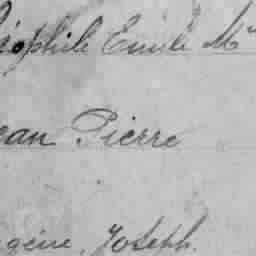 éophile Emile M
ean Pierre
ugène, Joseph.